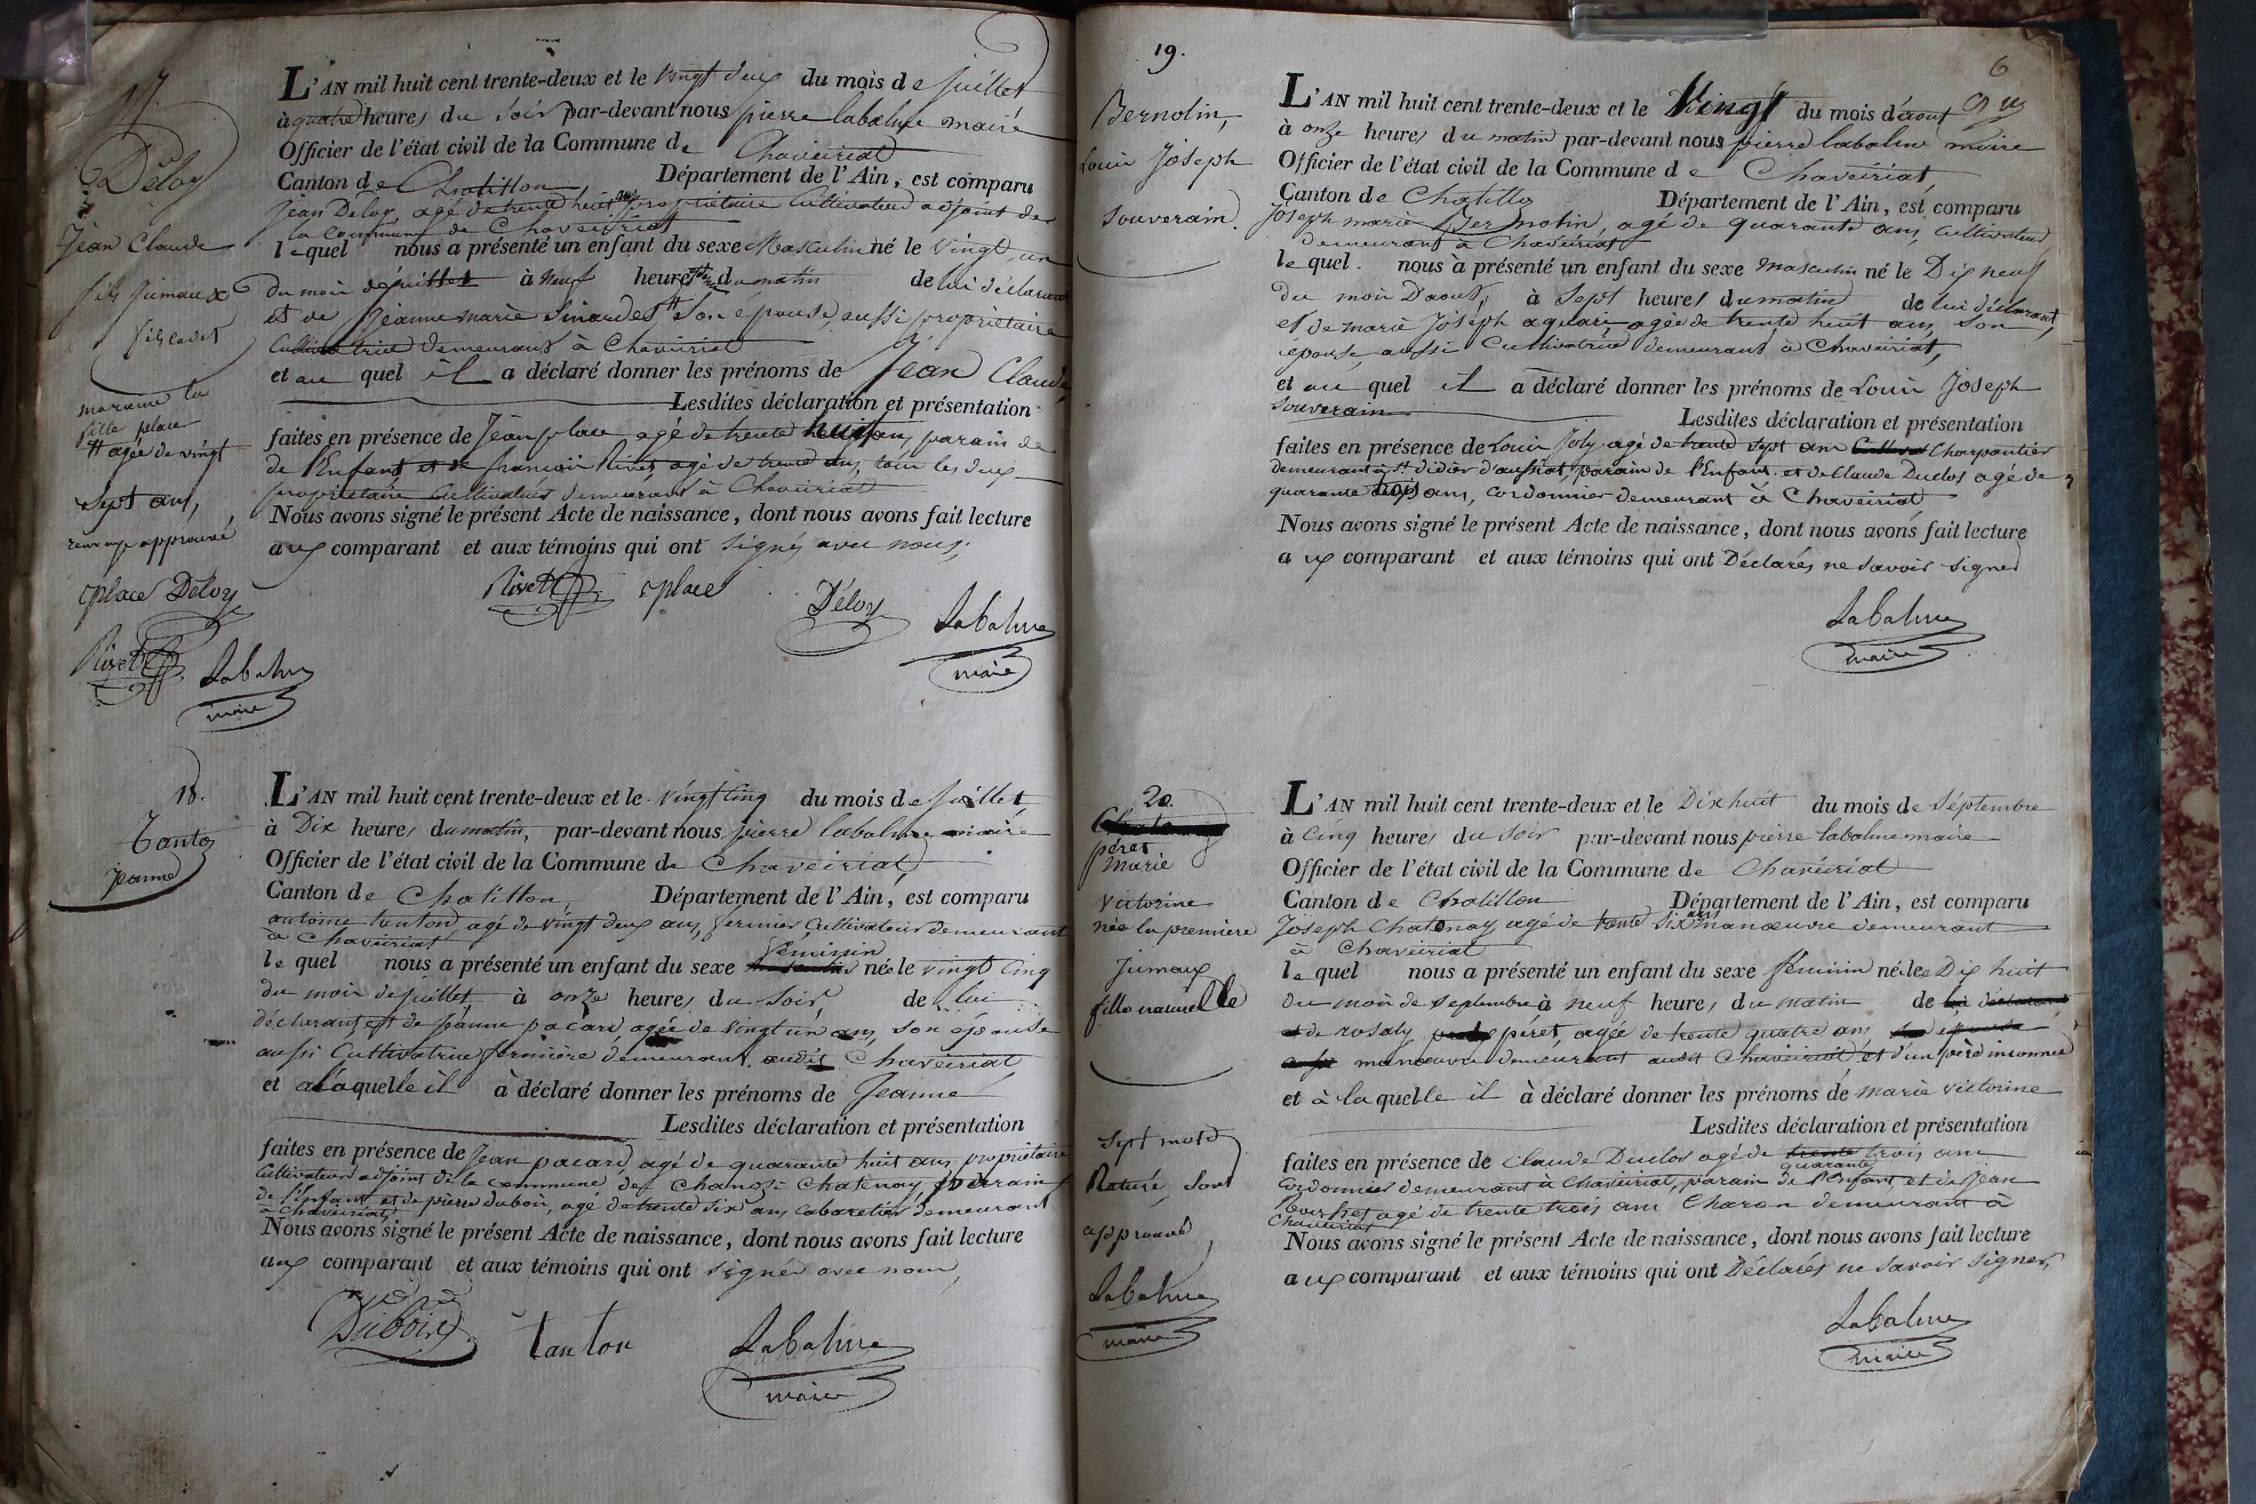 17.
Déloy
Jean Claude
fils jumaux
fils cadet
L'AN mil huit cent trente-deux et le vingt deux du mois de juillet
à quatre heures du soir par-devant nous pierre labalme maire
Officier de l'état civil de la Commune de Chaveiriat
Canton de Chatillon, Département de l'Ain, est comparu
Jean Déloy, agé de trente huit ans propriétaire Cultivateur adjoint de
la Commune de Chaveiriat
lequel nous a présenté un enfant du sexe Masculin né le vingt un
du mois de juillet à neuf heures du matin de lui déclarant
et de Jeanne marie # Son épouse, aussi propriétaire
Cultivatrice demeurant à Chaveiriat
et au quel il a déclaré donner les prénoms de Jean Claude
Lesdites déclaration et présentation
faites en présence de Jean place agé de trente huit ans, parain de
de l'Enfant et de françois Rivet, agé de trente ans, tous les deux
propriétaire Cultivateurs demeurant à Chaveiriat
Nous avons signé le présent Acte de naissance, dont nous avons fait lecture
aux comparant et aux témoins qui ont signés avec nous,
Rivet place Déloy Labalme
maire
# agée de vingt
sept ans,
renvoye approuvé
place Déloy
Rivet Labalme
maire
18.
Tanton
jeanne
L'AN mil huit cent trente-deux et le vingt cinq du mois de juillet
à Dix heures du matin, par-devant nous pierre labalme maire
Officier de l'état civil de la Commune de Chaveiriat
Canton de Chatillon, Département de l'Ain, est comparu
antoine tanton, agé de vingt deux ans, fermier Cultivateur demeurant
à Chaveiriat
féminin
lequel nous a présenté un enfant du sexe née le vingt cinq
du mois de juillet à onze heures du Soir de lui
déclarant et de jeanne pacard agée de vingt un ans, son épouse
aussi Cultivatrice fermière demeurant audit Chaveiriat
et à laquelle il à déclaré donner les prénoms de Jeanne
Lesdites déclaration et présentation
faites en présence de Jean pacard, agé de quarante huit ans propriétaire
Cultivateur adjoint de la commune de Chanoz Chatenay, parain
de l'Enfant et de pierre dubois, agé de trente six ans Cabaretier demeurant
à Chaveiriat
Nous avons signé le présent Acte de naissance, dont nous avons fait lecture
aux comparant et aux témoins qui ont signés avec nous,
Dubois tanton Labalme
maire
6
19.
Bernolin,
Louis Joseph
Souverain.
L'AN mil huit cent trente-deux et le Vingt du mois d'aout
à onze heures du matin par-devant nous pierre labalme maire
Officier de l'état civil de la Commune de Chaveiriat,
Canton de Chatillo Département de l'Ain, est comparu
Joseph marie Bernolin, agé de quarante ans, Cultivateur
demeurant à Chaveiriat
lequel. nous à présenté un enfant du sexe masculin né le Dix neuf
du mois D'aout, à Sept heures du matin de lui déclarant,
et de marie Joseph agée de trente huit ans, son
épouse, aussi Cultivatrice demeurant à Chaveiriat,
et au quel il a déclaré donner les prénoms de Louis Joseph
Souverain
Lesdites déclaration et présentation
faites en présence de Louis Joly agé de trente sept ans Charpantier
demeurant à St. didier d'aussiat, parain de l'Enfant. et de Claude Duclos agé de
quarante trois ans, cordonnier demeurant à Chaveiriat
Nous avons signé le présent Acte de naissance, dont nous avons fait lecture
aux comparant et aux témoins qui ont Déclarés ne savoir signer
Labalme
maire
20.
péret
Marie
Victorine
née la première
Jumaux
fille naturelle
L'AN mil huit cent trente-deux et le Dix huit du mois de Séptembre
à Cinq heures du Soir par-devant nous pierre labalme maire
Officier de l'état civil de la Commune de Chaveiriat
Canton de Chatillon Département de l'Ain, est comparu
Joseph Chatenay agé de trente six ans manœuvre demeurant
à Chaveiriat
lequel nous a présenté un enfant du sexe féminin née le Dix huit
du mois de septembre à neuf heures du matin de
de rosaly péret, agée de trente quatre ans
manœuvre demeurant audit Chaveiriat, et d'un père inconnu
et à laquelle il à déclaré donner les prénoms de marie victorine
Lesdites déclaration et présentation
faites en présence de Claude Duclos agé de trente trois ans
quarante
Cordonnier demeurant à Chaveiriat, parain de l'Enfant et de Jean
agé de trente trois ans Charon demeurant à
Chaveiriat
Nous avons signé le présent Acte de naissance, dont nous avons fait lecture
aux comparant et aux témoins qui ont Déclarés ne savoir signer,
Labalme
maire
Sept mots
Raturé, Sont
approuvé,
Labalme
maire